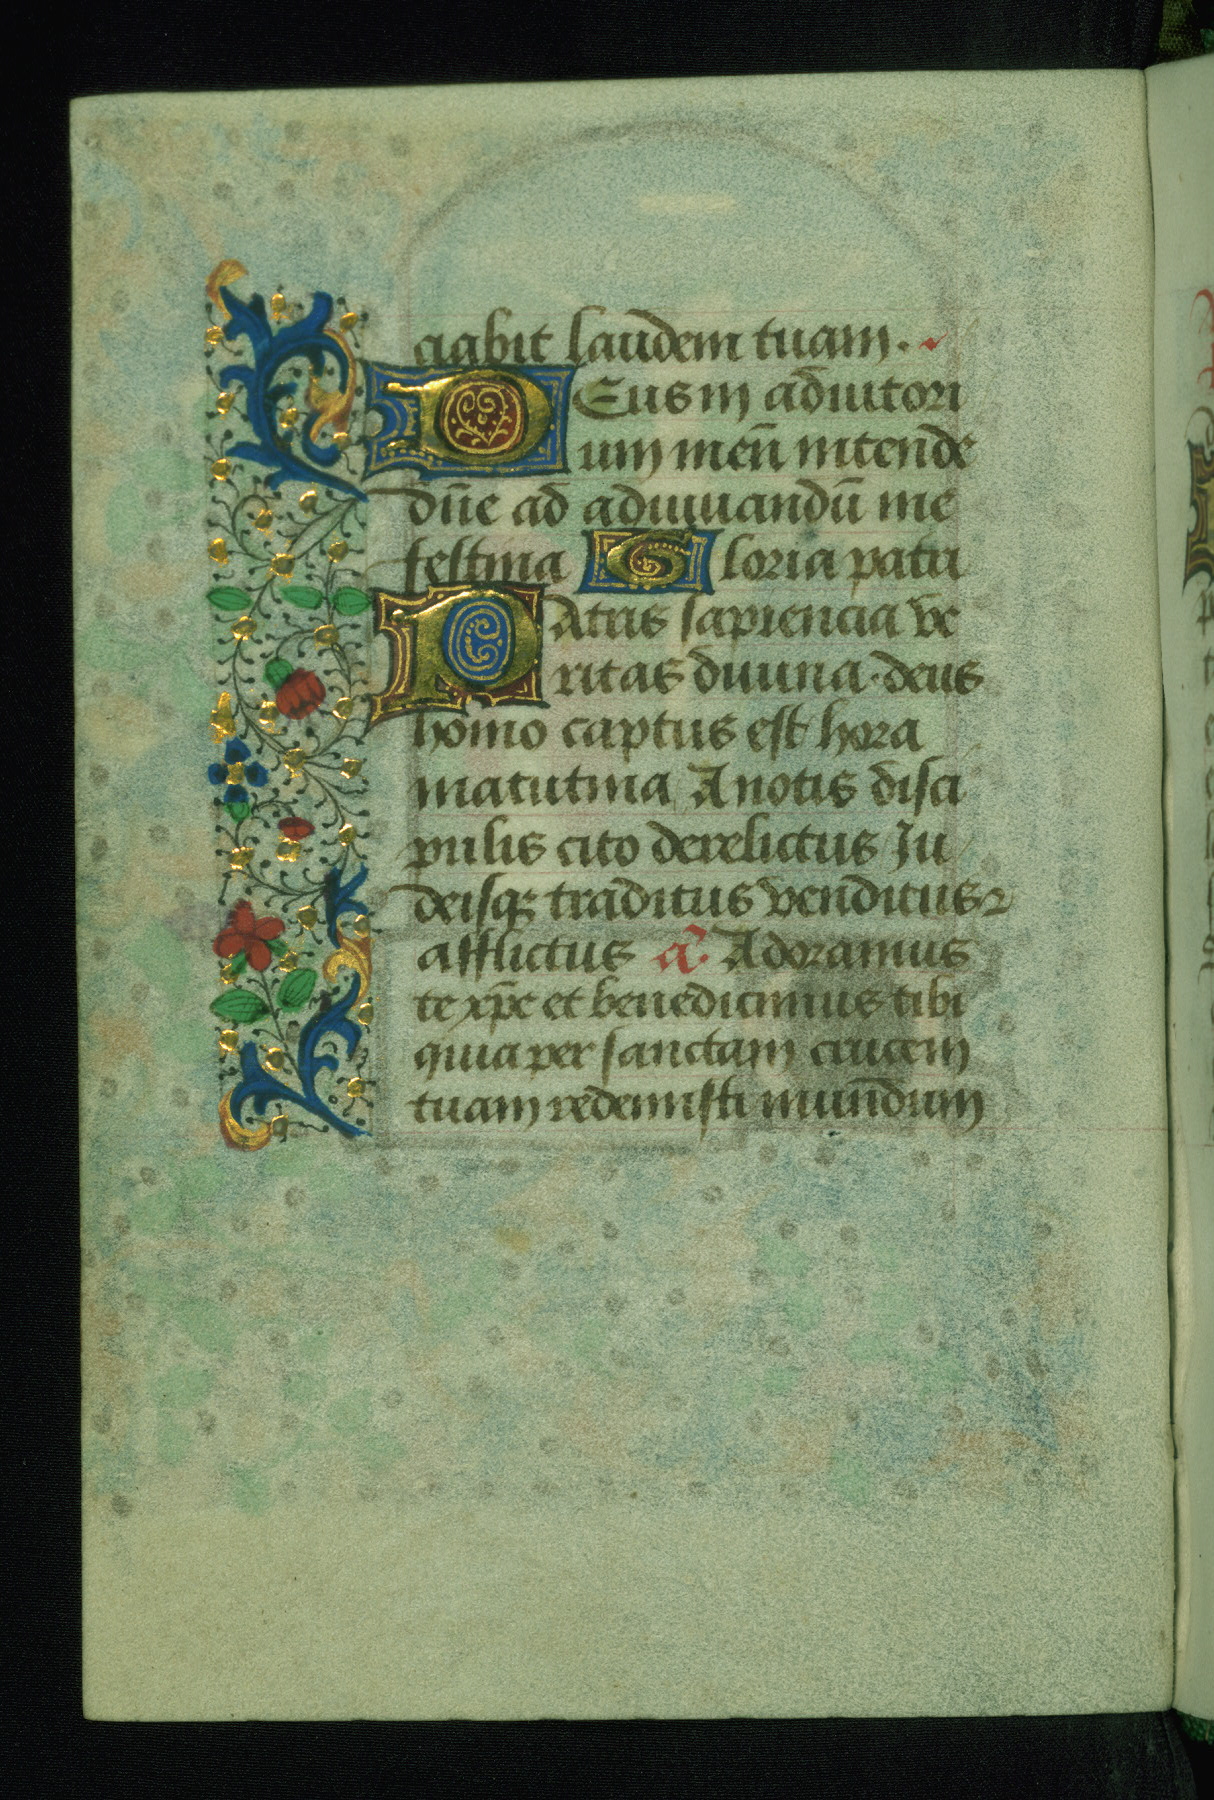 ciabit laudem tuam.
DEus in adiutori
um meū intende
dn̄e ad adiuuandū me
festina Gloria patri
PAtris sapiencia ve
ritas diuina. deus
homo captus est hora
matutina A notis disci
pulis cito derelictus Ju
deisqꝫ traditus venditusꝛ
afflictus aʼ. Adoramus
te xp̄e et benedicimus tibi
quia per sanctam crucem
tuam redemisti mun̄dum